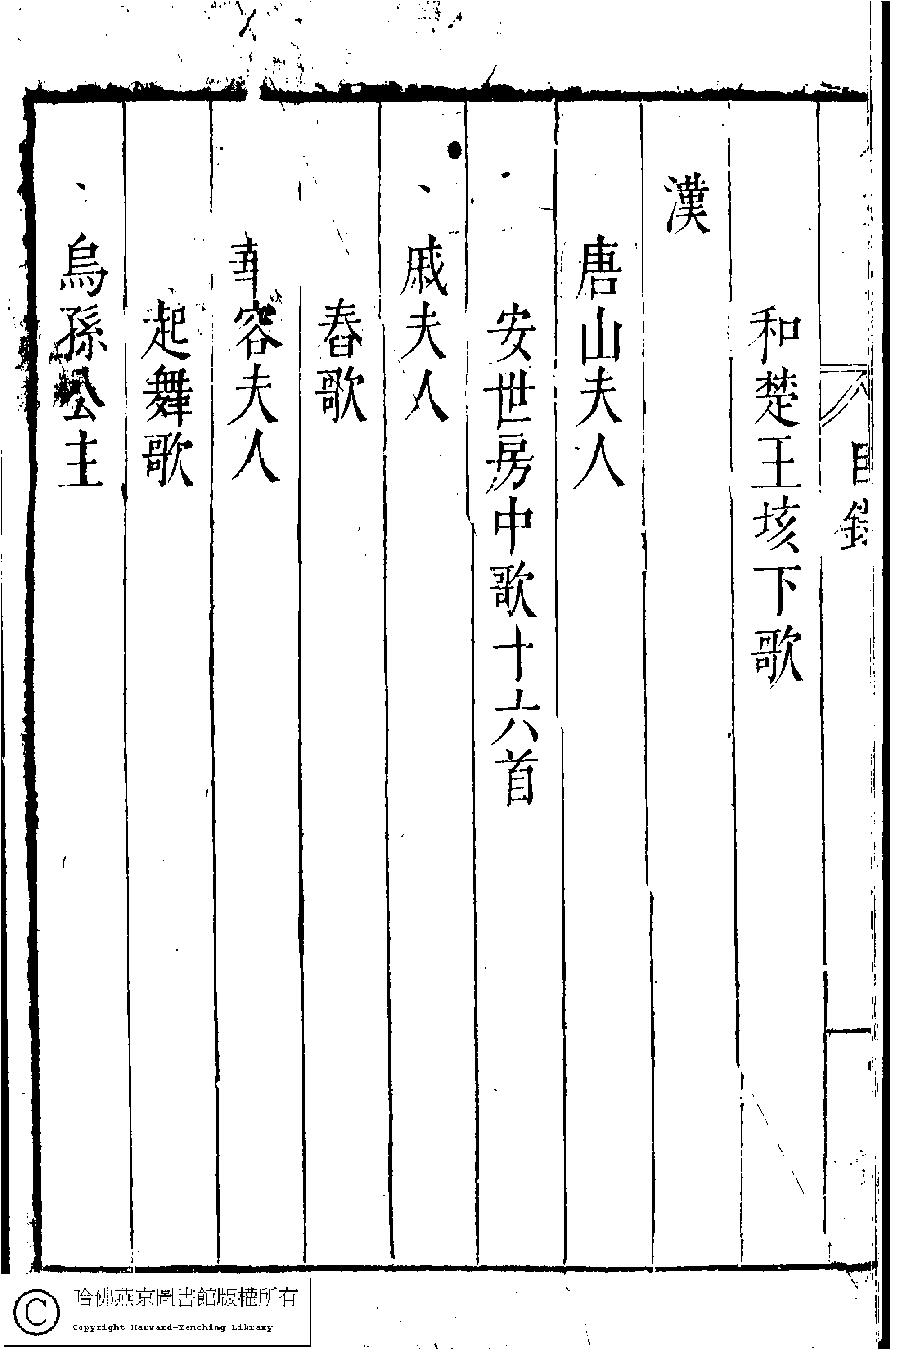 目錄
和楚王垓下歌
漢
唐山夫人
安世房中歌十六首
戚夫人
舂歌
華容夫人
起舞歌
烏孫公主
哈佛燕京圖書館版權所有
Copyright Harvard-Yenching Library